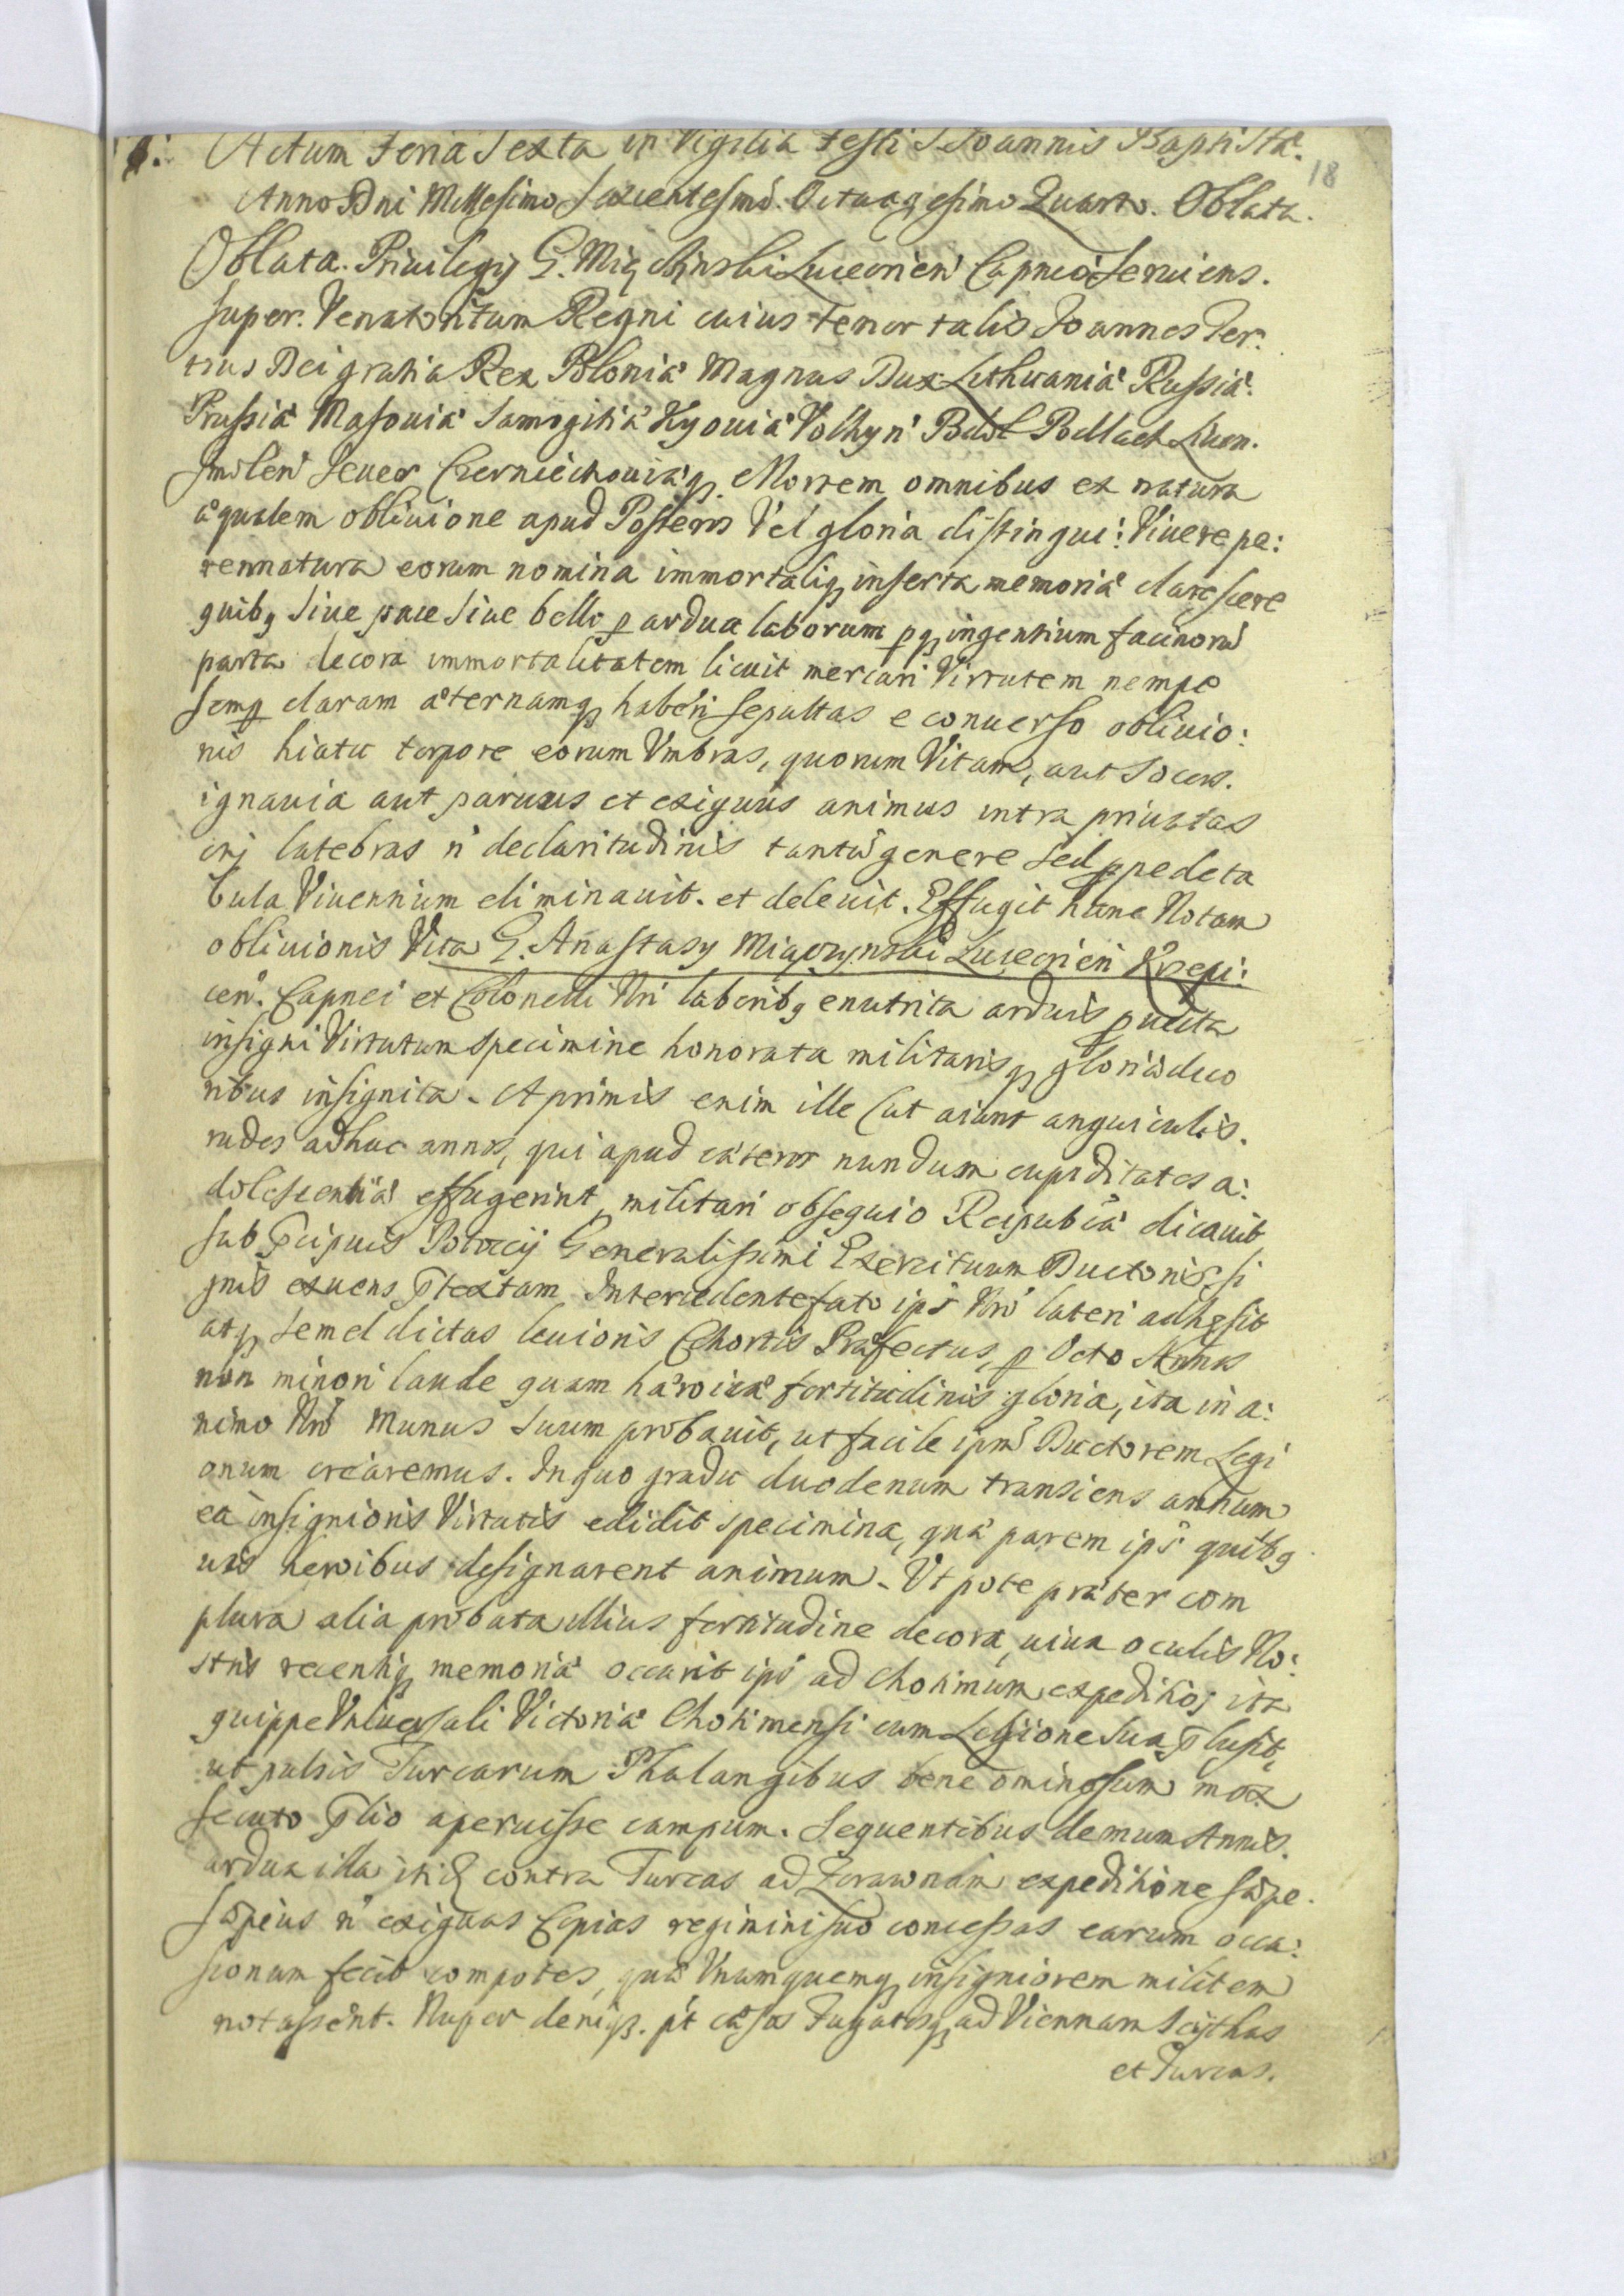 Actum Feria Sexta in Vigilia Festi S Joannis Baptistæ.
18
Anno Dni Millesimo Sexcentesimo. Octuagesimo Quarto. Oblata.
Oblata. Priuilegij G. Miączÿnski Luceorien Capneo Seruiens.
super. Venatoritum Regni cuius tenor talis Joannes Ter:
tius Dei gratia Rex Poloniæ Magnus Dux Lithuaniæ Russiæ.
Prussiæ Masouiæ Samogitiæ Kyouiæ Volhyn Podol Podlach Liuon.
Smolen Seuer Czerniechouiæq. Mortem omnibus ex natura
æqualem obliuione apud Posteros Vel gloria distingui: Viuere pe:
rennatura eorum nomina immortaliq inserta memoriæ clarescere
quibq siue pace siue bello p ardua laborum pq ingentium facinorū
parta decora immortalitatem licuit mercari Virtutem nempe
semp claram æternamq haberi sepultas e conuerso obliuio:
nis hiatu torpore eorum Vmbras, quorum Vitam, aut Socors.
ignauia aut paruus et exiguus animus intra priuatas
latebras ñ declaritudinis tantū genere sed de ta
bula Viuentium eliminauit. et deleuit. Effugit hanc Notam
obliuionis Vita G. Anastasy Miączynski Luceorien Krzepi:
cen. Capnei et Colonelli Nri laboribq enutrita arduis puecta
insigni Virtutum specimine honorata militarisq gloriæ deco
ribus insignita. A primis enim ille (ut aiunt anguiculis.
rudes adhuc annos, qui apud cæteros nundum cupiditates a:
dolescentiæ effugerint, militari obsequio Reipubcæ dicauit
sub Potocij Generalissimi Exercituum Ductoris, si
gnis exuens ptextam. Intercedente fato ips Nro lateri adhęsit
atq semel dictus leuioris Cohortis Præfectus, p Octo Annos
non minori laude quam hæroicæ fortitudinis gloria, ita in a:
nimo Nro Munus suum probauit, ut facile ipm Ductorem Legi
onum crearemus. In quo gradu duodenum transiens annum
ea insignioris Virtutis edidit specimina, quæ parem ips quibq
uis heroibus designarent animum. Vt pote præter com
plura alia probata illius fortitudine decora, uiua oculis No:
stris recentiq memoriæ occurit ips ad Chotimum expeditioj ita
quippe Vniuersali Victoriæ Chotimensi cum Legione sua plusit,
ut pulsis Turcarum Phalangibus bene ominosum mox
secuto plio aperuisse campum. Sequentibus demum Annis.
ardua illa contra Turcas ad Zurawnam expeditione sæpe.
sæpius ñ exiguas Copias regimini suo concessas earum occa:
sionum fecit compotes, quæ Vnumquemq insigniorem militem
notassent. Nuper deniq. pt cæsos fugatosq ad Viennam Scythas
et Turcas.